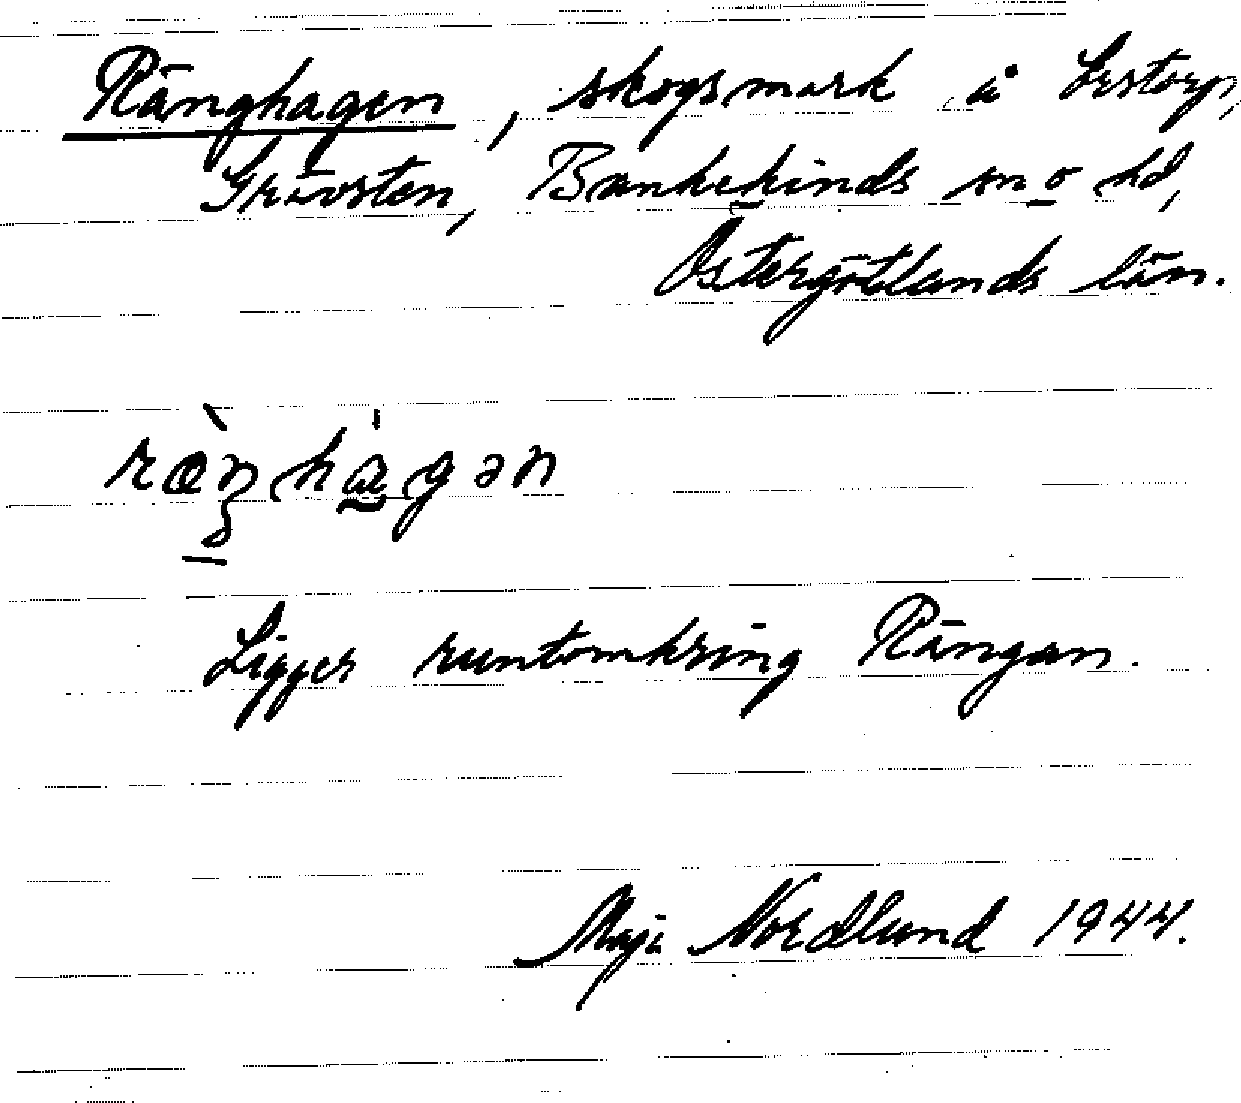 Ränghagen, skogsmark å Lestorp,
Grävsten, Bankekinds sn o hd,
Östergötlands län.
Ligger runtomkring Rängan.
Maja Nordlund 1944.